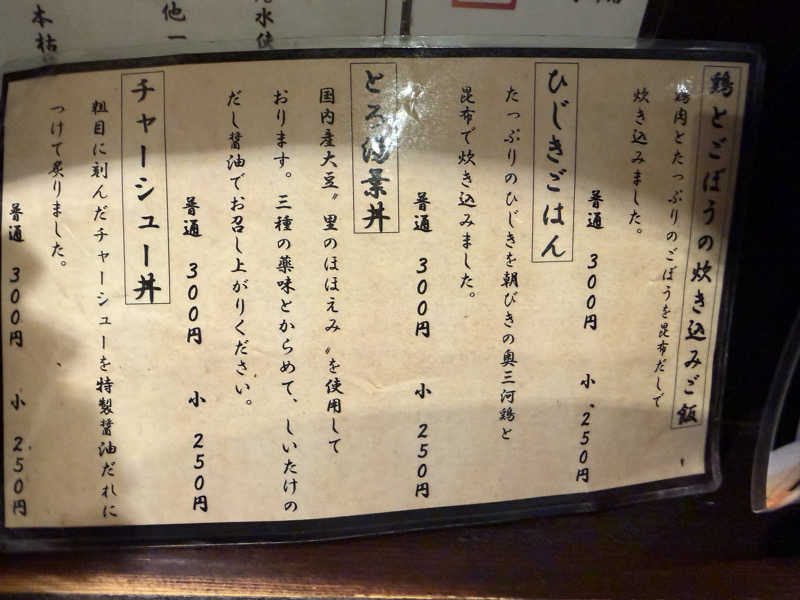 鶏とごぼうの炊き込みご飯
鶏肉とたっぷりのごぼうを昆布だしで
炊き込みました。
普通 300円 小 250円
ひじきごはん
たっぷりのひじきを朝びきの奥三河鶏と
昆布で炊き込みました。
普通 300円 小 250円
とろ湯葉丼
国内産大豆〝里のほほえみ〟を使用して
おります。三種の薬味とからめて、しいたけの
だし醤油でお召し上がりください。
普通 300円 小 250円
チャーシュー丼
粗目に刻んだチャーシューを特製醤油だれに
つけて炙りました。
普通 300円 小 250円
水使
他一
本枯